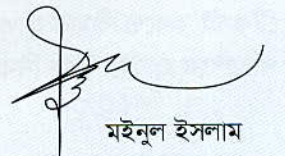 মইনুল ইসলাম